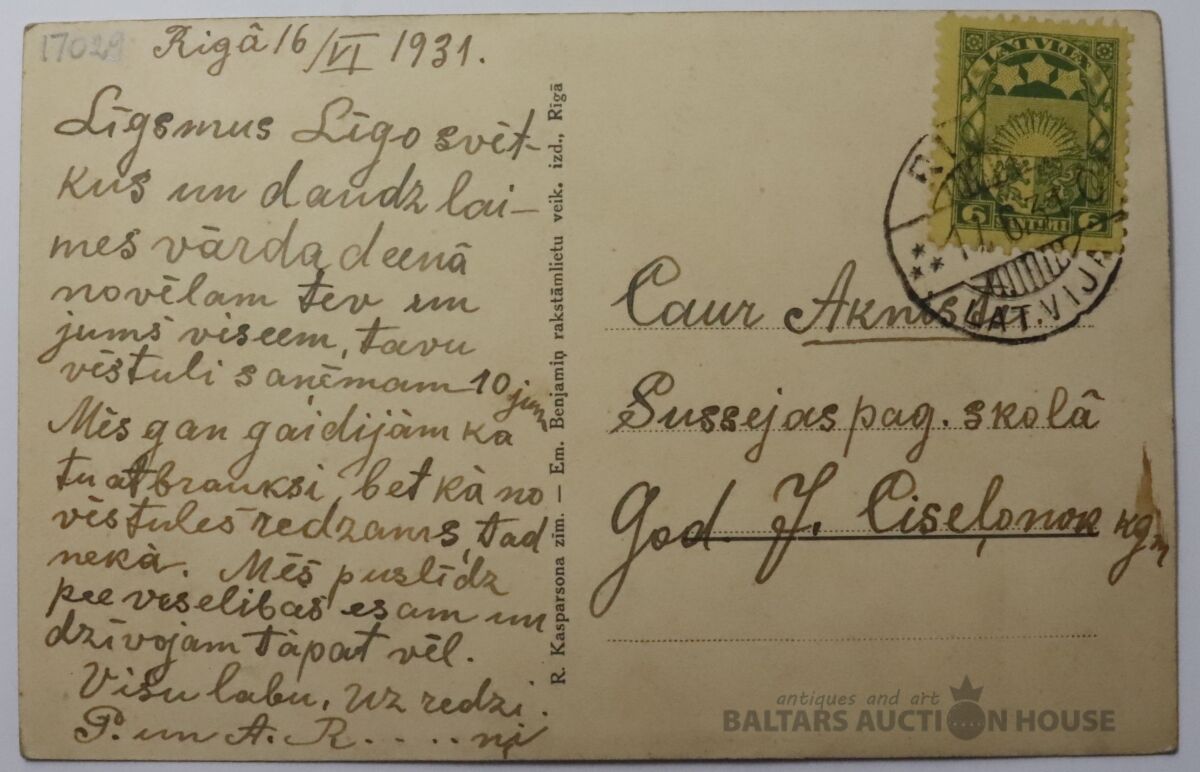 17029
Rigâ 16/VI 1931.
Līgsmus Līgo svēt-
kus un daudz lai-
mes vārda deenā
novēlam tev un
jums viseem, tavu
vēstuli saņēmam 10 jun
Mēs gan gaidijām ka
tu atbrauksi, bet kà no
vēstules redzams, tad
nekà. Mēs puslīdz
pee veselibas esam un
dzīvojam tāpat vēl.
Visu labu, uz redzi.
P. un A. R....ņi
R. Kasparsona zīm. — Em. Benjamiņ rakstāmlietu veik. izd., Rīgā
LATVIJA
6 SANTIMI 6
LATVIJA
Caur Aknisti
Sussejas pag. skolâ
God. J. Ciseļonok kgm
antiques and art
BALTARS AUCTION HOUSE